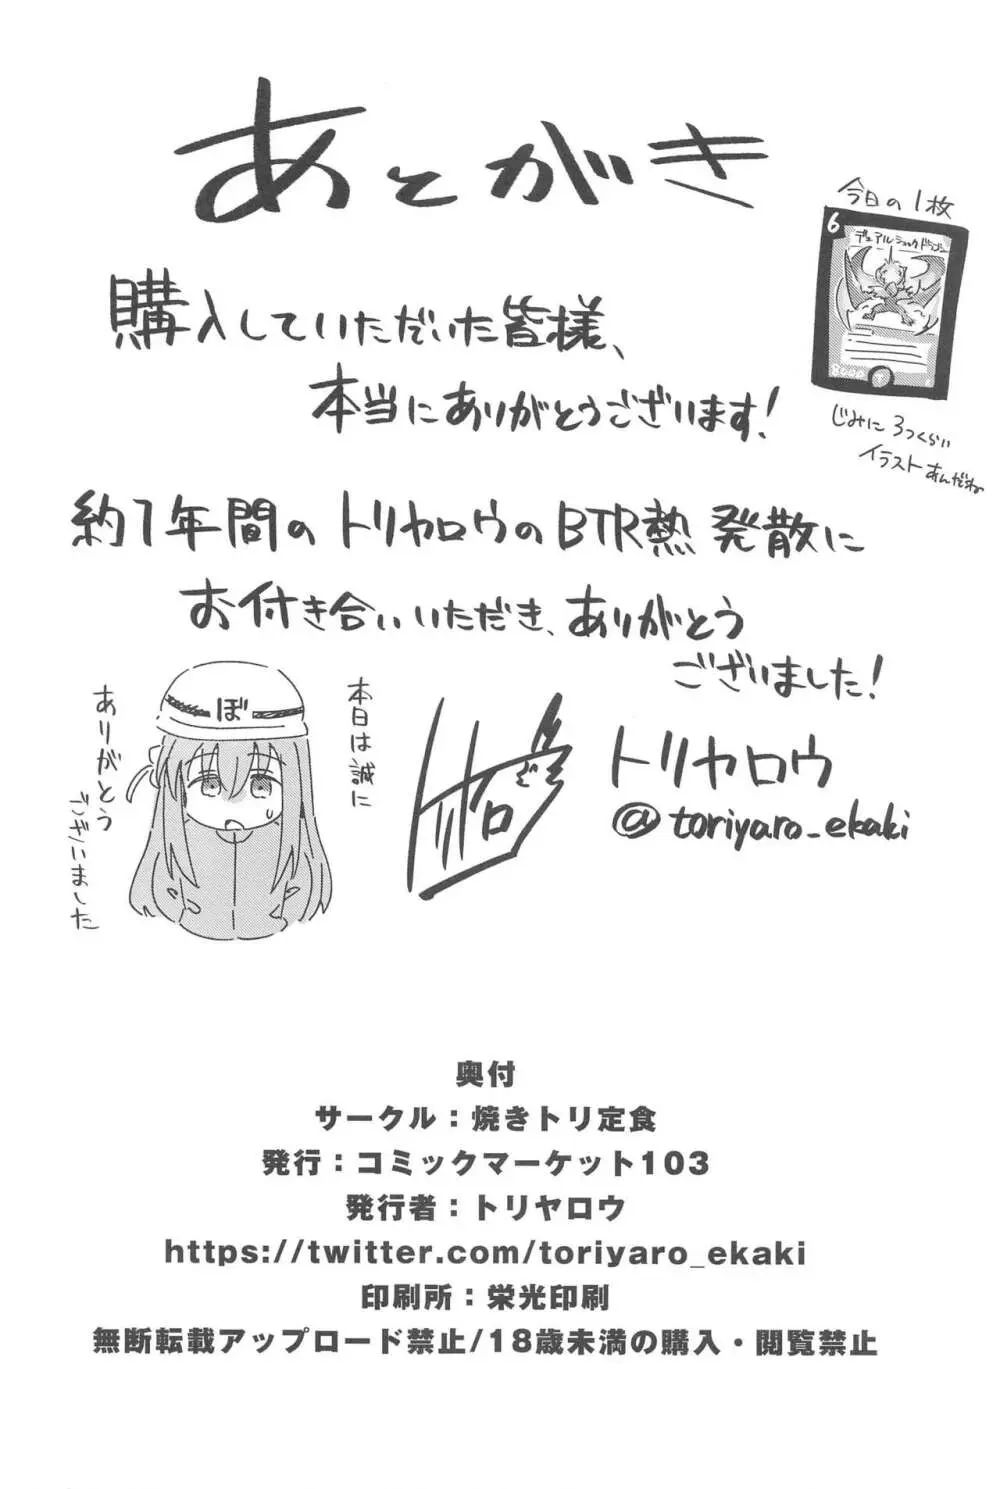 あとがき
今日の1枚
6
デュアルショックドラゴン
8000
じみに3つくらい
イラストあんだね
購入していただいた皆様、
本当にありがとうございます!
約1年間のトリヤロウのBTR熱発散に
お付き合いいただき、ありがとう
ございました!
本日は誠に
ありがとう
ございました
ぼ
トリヤロウ
@toriyaro_ekaki
奥付
サークル:焼きトリ定食
発行:コミックマーケット103
発行者:トリヤロウ
https://twitter.com/toriyaro_ekaki
印刷所:栄光印刷
無断転載アップロード禁止/18歳未満の購入・閲覧禁止